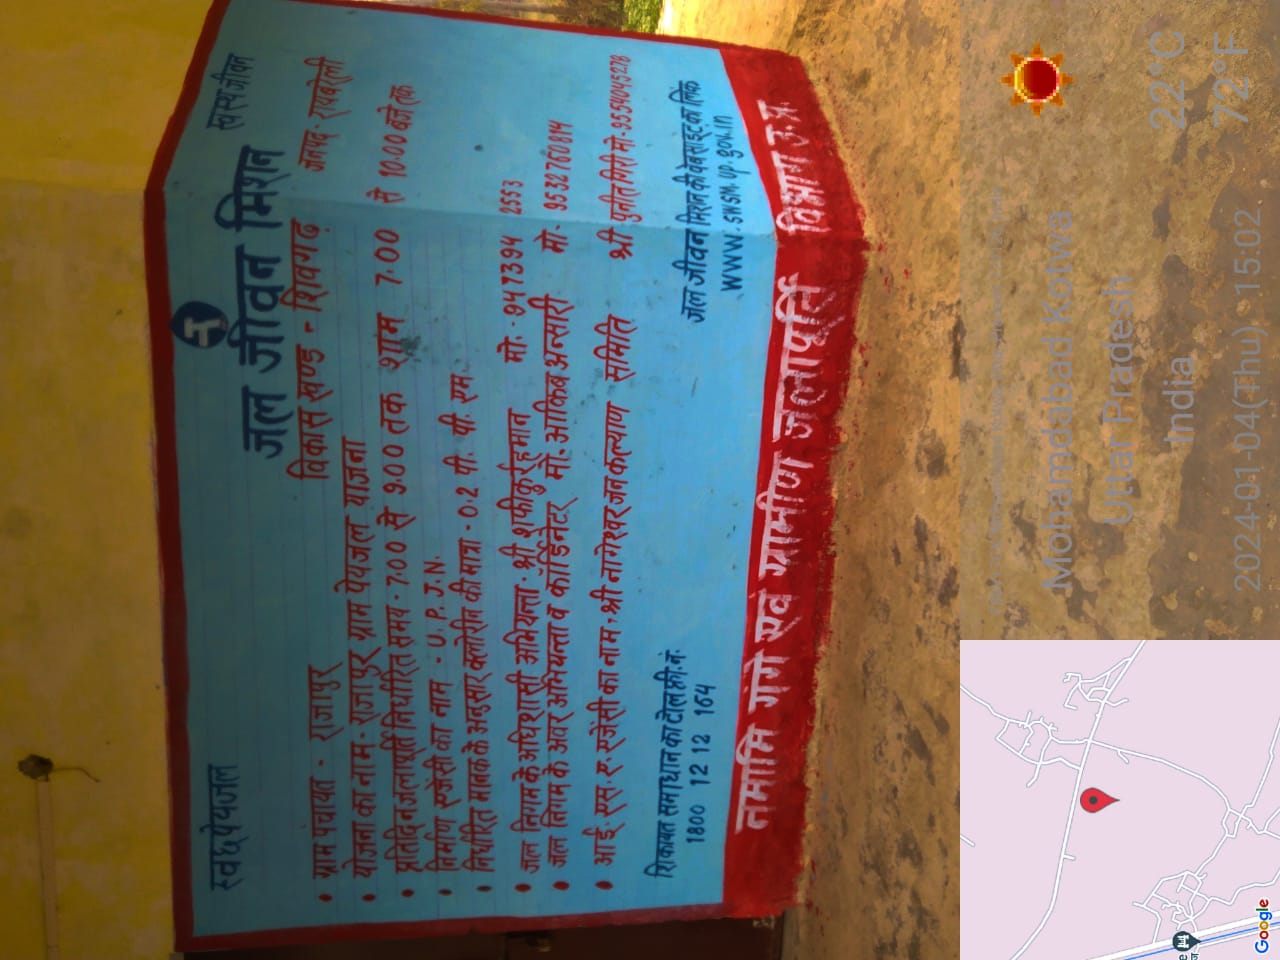 स्वच्छ पेयजल
स्वस्थ जीवन
जल जीवन मिशन
विकास खण्ड - शिवगढ़
जनपद - रायबरेली
• ग्राम पंचायत - राजापुर
• योजना का नाम - राजापुर ग्राम पेयजल योजना
• प्रतिदिन जलापूर्ति निर्धारित समय - 7:00 से 9:00 तक शाम 7:00 से 10:00 बजे तक
• निर्माण एजेंसी का नाम - U. P. J. N.
• निर्धारित मानक के अनुसार क्लोरीन की मात्रा - 0.2 पी. पी. एम.
• जल निगम के अधिशासी अभियन्ता - श्री शफीकुर्रहमान मो. - 947394 2553
• जल निगम के अवर अभियन्ता व कॉर्डिनेटर मो. आकिब अन्सारी मो. - 9532760814
• आई. एस. ए. एजेंसी का नाम - श्री नागेश्वर जन कल्याण समिति श्री पुनीत गिरी मो - 9554045278
शिकायत समाधान का टोल फ्री. नं.
1800 12 12 164
जल जीवन मिशन की वेबसाइट का लिंक
WWW.swsm.up.gov.in
नमामि गंगे एवं ग्रामीण जलापूर्ति विभाग उ.प्र.
22°C
72°F
Mohamdabad Kotwa
Uttar Pradesh
India
2024-01-04(Thu) 15:02
Google